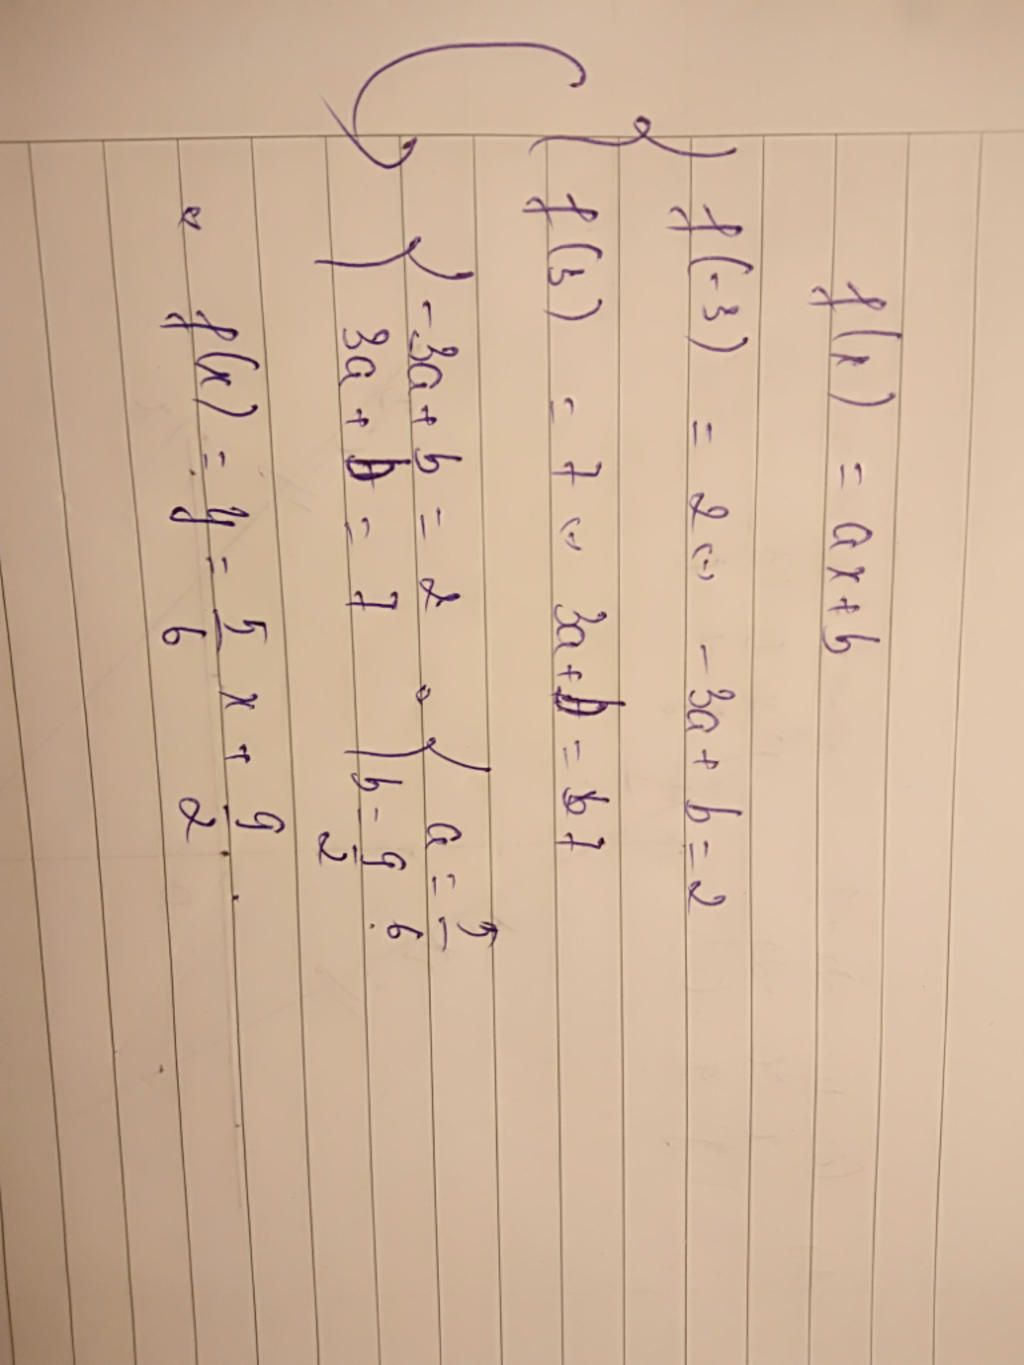 f(x) = ax+b
{ f(-3) = 2 ⇔ -3a + b = 2
f(3) = 7 ⇔ 3a + b = 7
⇒ { -3a + b = 2
3a + b = 7
⇔ { a = 5/6
b = 9/2
⇔ f(x) = y = 5/6 x + 9/2 .